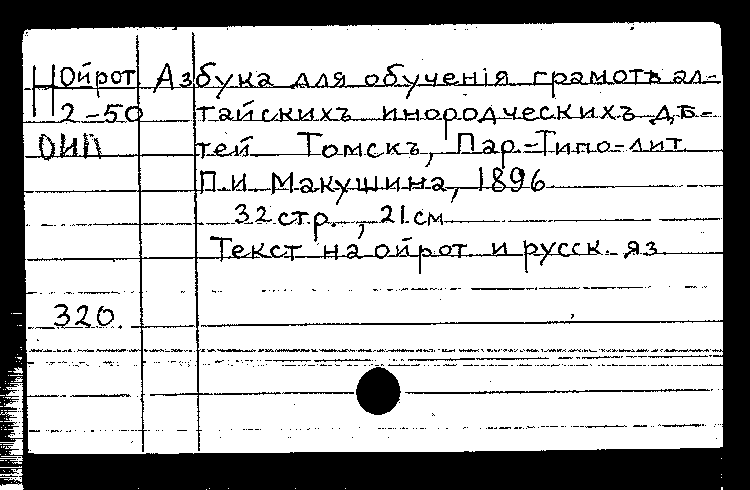 Н Ойрот Азбука для обученія грамотѣ ал-
2-50 тайскихъ инородческихъ дѣ-
ОИП тей Томскъ, Пар.-Типо-лит
П.И. Макушина, 1896
32 стр., 21 см
Текст на ойрот. и русск. яз.
320.